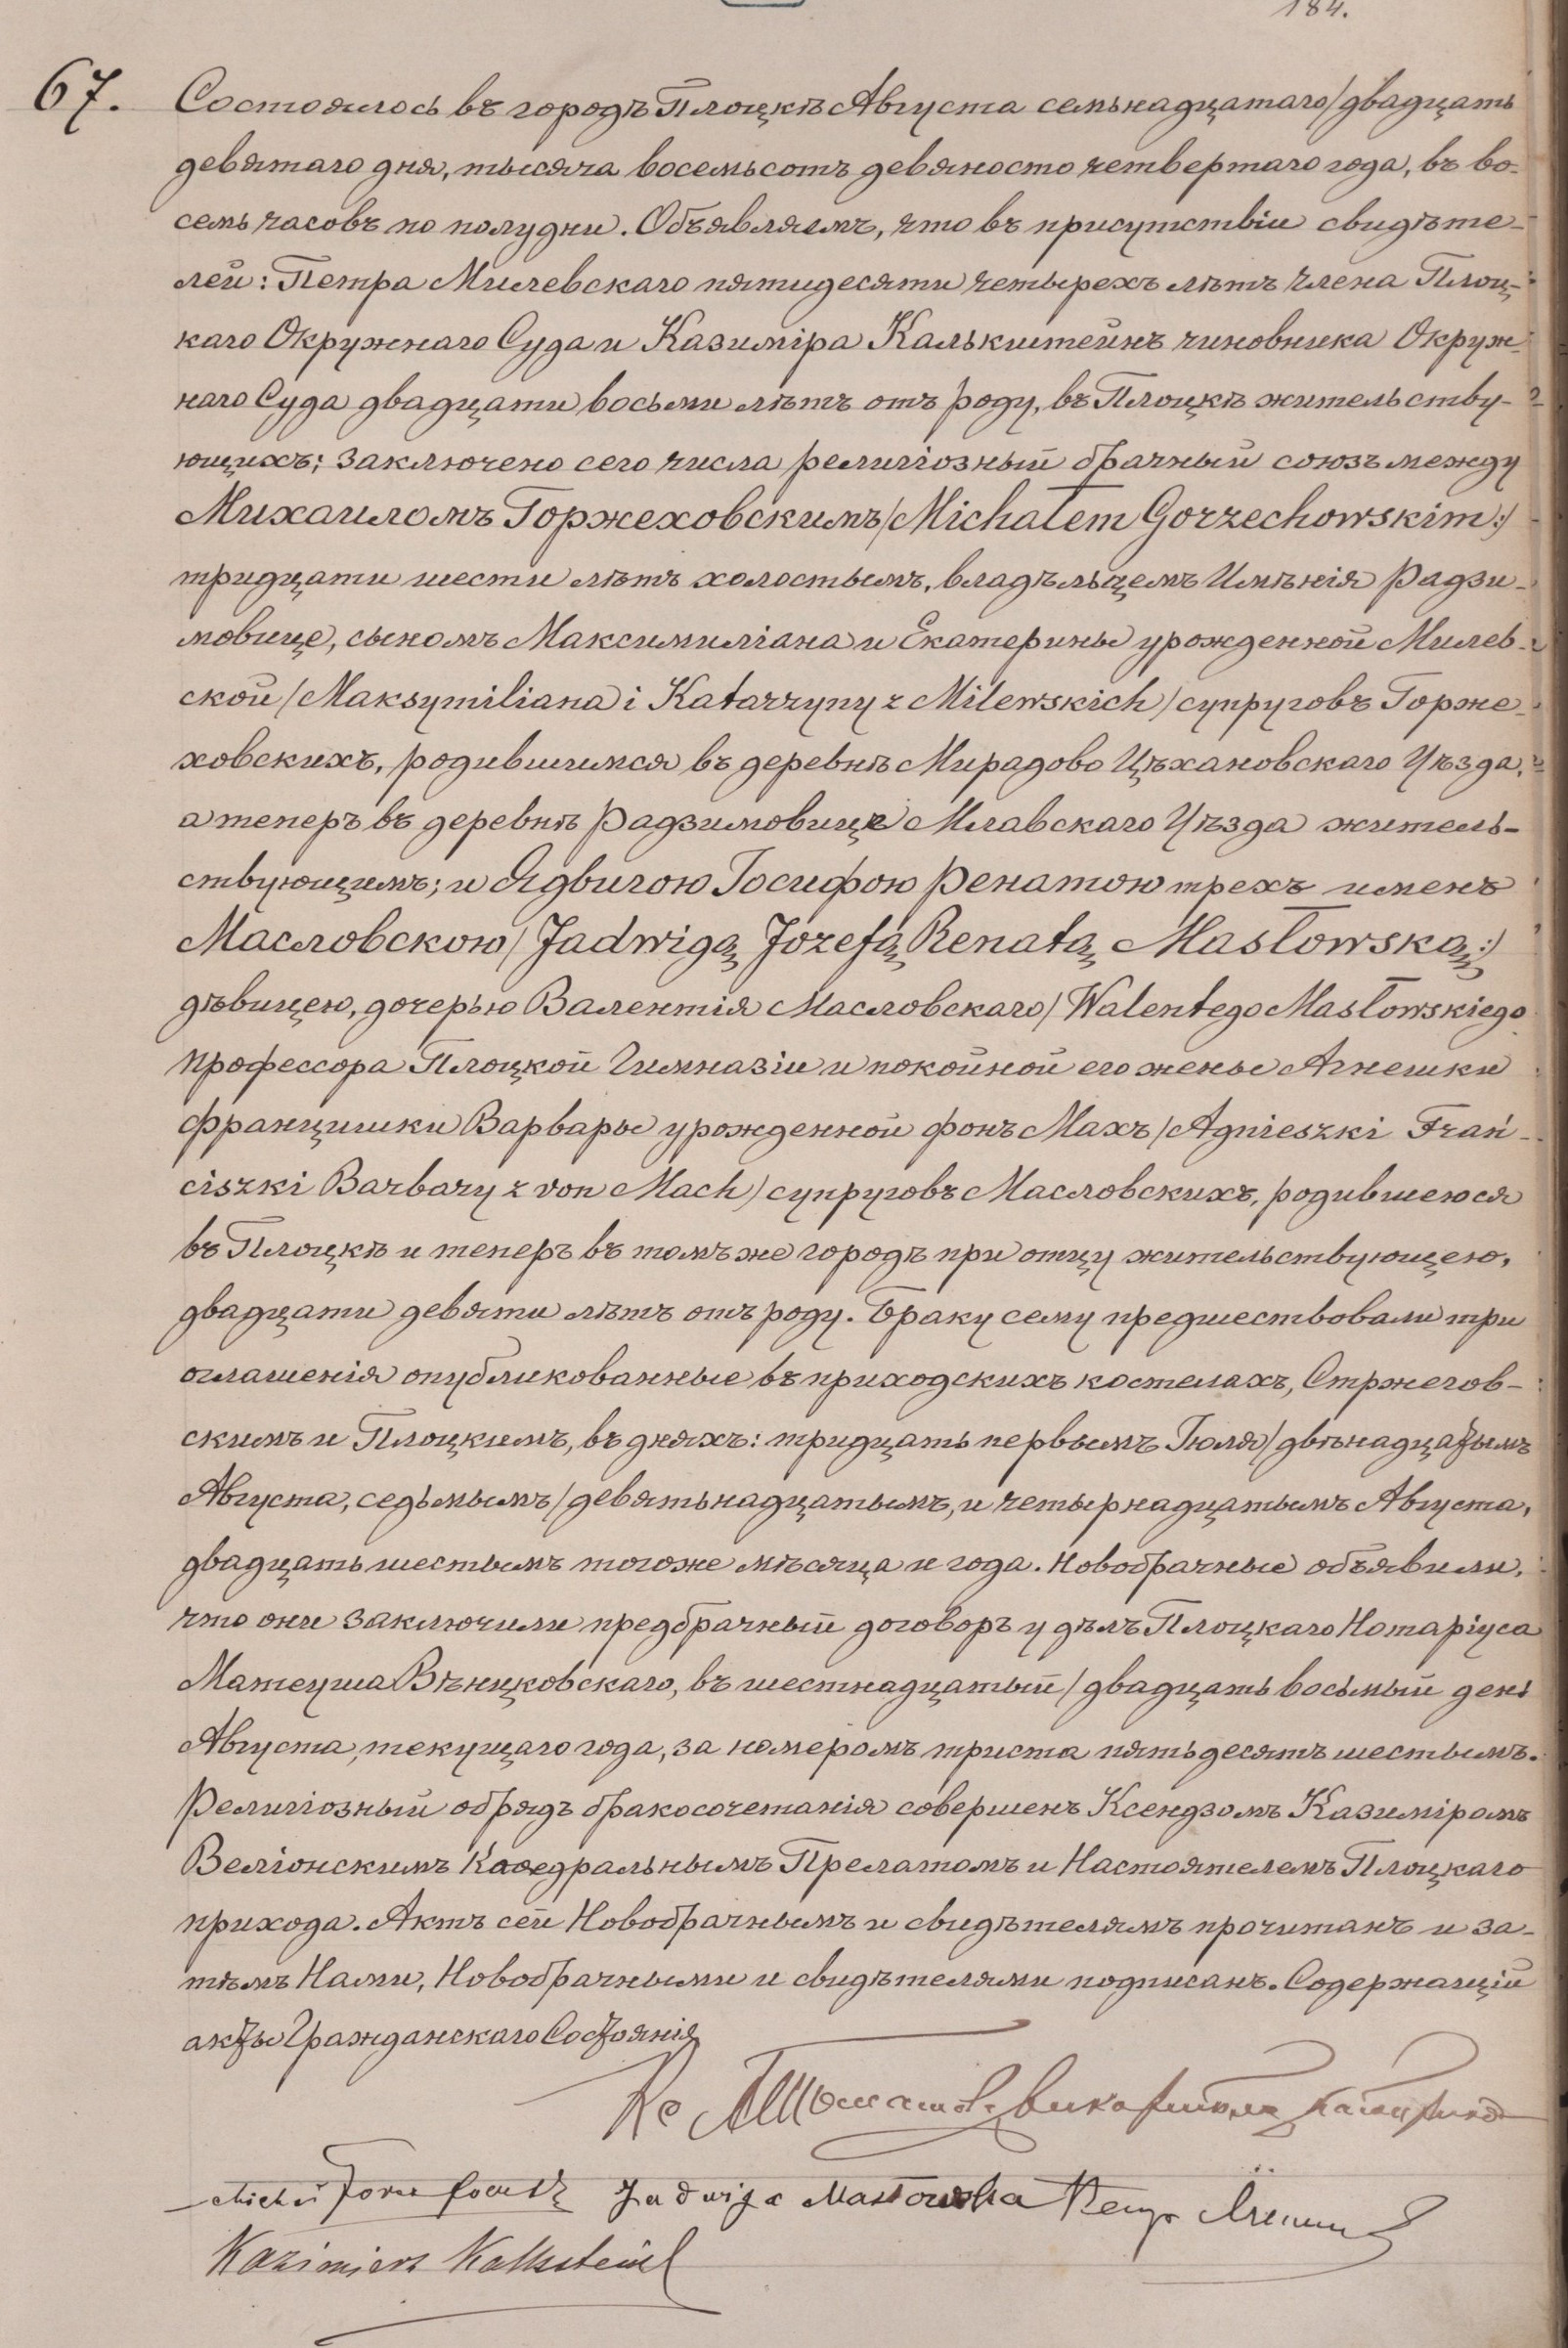 184.
67. Состоялось въ городѣ Плоцкѣ Августа семьнадцатаго/двадцать
девятаго дня, тысяча восемьсотъ девяносто четвертаго года, въ во-
семь часовъ по полудни. Объявляемъ, что въ присутствіи свидѣте-
лей: Петра Милевскаго пятидесяти четырехъ лѣтъ Члена Плоц-
каго Окружнаго Суда и Казиміра Калькштейнъ чиновника Окруж-
наго Суда двадцати восьми лѣтъ отъ роду, въ Плоцкѣ жительству-
ющихъ; заключено сего числа религіозный брачный союзъ между
Михаиломъ Горжеховскимъ/Michałem Gorzechowskim:/
тридцати шести лѣтъ холостымъ, владѣльцемъ Имѣнія Радзи-
мовице, сыномъ Максимиліана и Екатерины урожденной Милев-
ской/Maksymiliana i Katarzyny z Milewskich/супруговъ Горже-
ховскихъ, родившимся въ деревнѣ Мирадово Цѣхановскаго Уѣзда,
а теперъ въ деревнѣ Радзимовице Млавскаго Уѣзда житель-
ствующимъ; и Ядвигою Іосифою Ренатою трехъ именъ
Масловскою/Jadwigą Józefą Renatą Masłowską:/
дѣвицею, дочерью Валентія Масловскаго/Walentego Masłowskiego
профессора Плоцкой Гимназіи и покойной его жены Агнешки
Францишки Варвары урожденной фонъ Махъ/Agnieszki Fran-
ciszki Barbary z von Mach/супруговъ Масловскихъ, родившеюся
въ Плоцкѣ и теперъ въ томъ же городѣ при отцу жительствующею,
двадцати девяти лѣтъ отъ роду. Браку сему предшествовали три
оглашенія опубликованные въ приходскихъ костелахъ, Стржегов-
скимъ и Плоцкимъ, въ дняхъ: тридцать первымъ Іюля/двѣнадцатымъ
Августа, седьмымъ/девятьнадцатымъ, и четырнадцатымъ Августа,
двадцать шестымъ тогоже мѣсяца и года. Новобрачные объявили,
что они заключили предбрачный договоръ у дѣлъ Плоцкаго Нотаріуса
Матеуша Вѣнцковскаго, въ шестнадцатый/двадцать восьмый день
Августа текущаго года, за номеромъ триста пятьдесятъ шестымъ.
Религіозный обрядъ бракосочетанія совершенъ Ксендзомъ Казиміромъ
Веліонскимъ Каѳедральнымъ Прелатомъ и Настоятелемъ Плоцкаго
прихода. Актъ сей Новобрачнымъ и свидѣтелямъ прочитанъ и за-
тѣмъ Нами, Новобрачными и свидѣтелями подписанъ. Содержащій
акты Гражданскаго Состоянія
Jadwiga Masłowska
Kazimierz Kalkstein